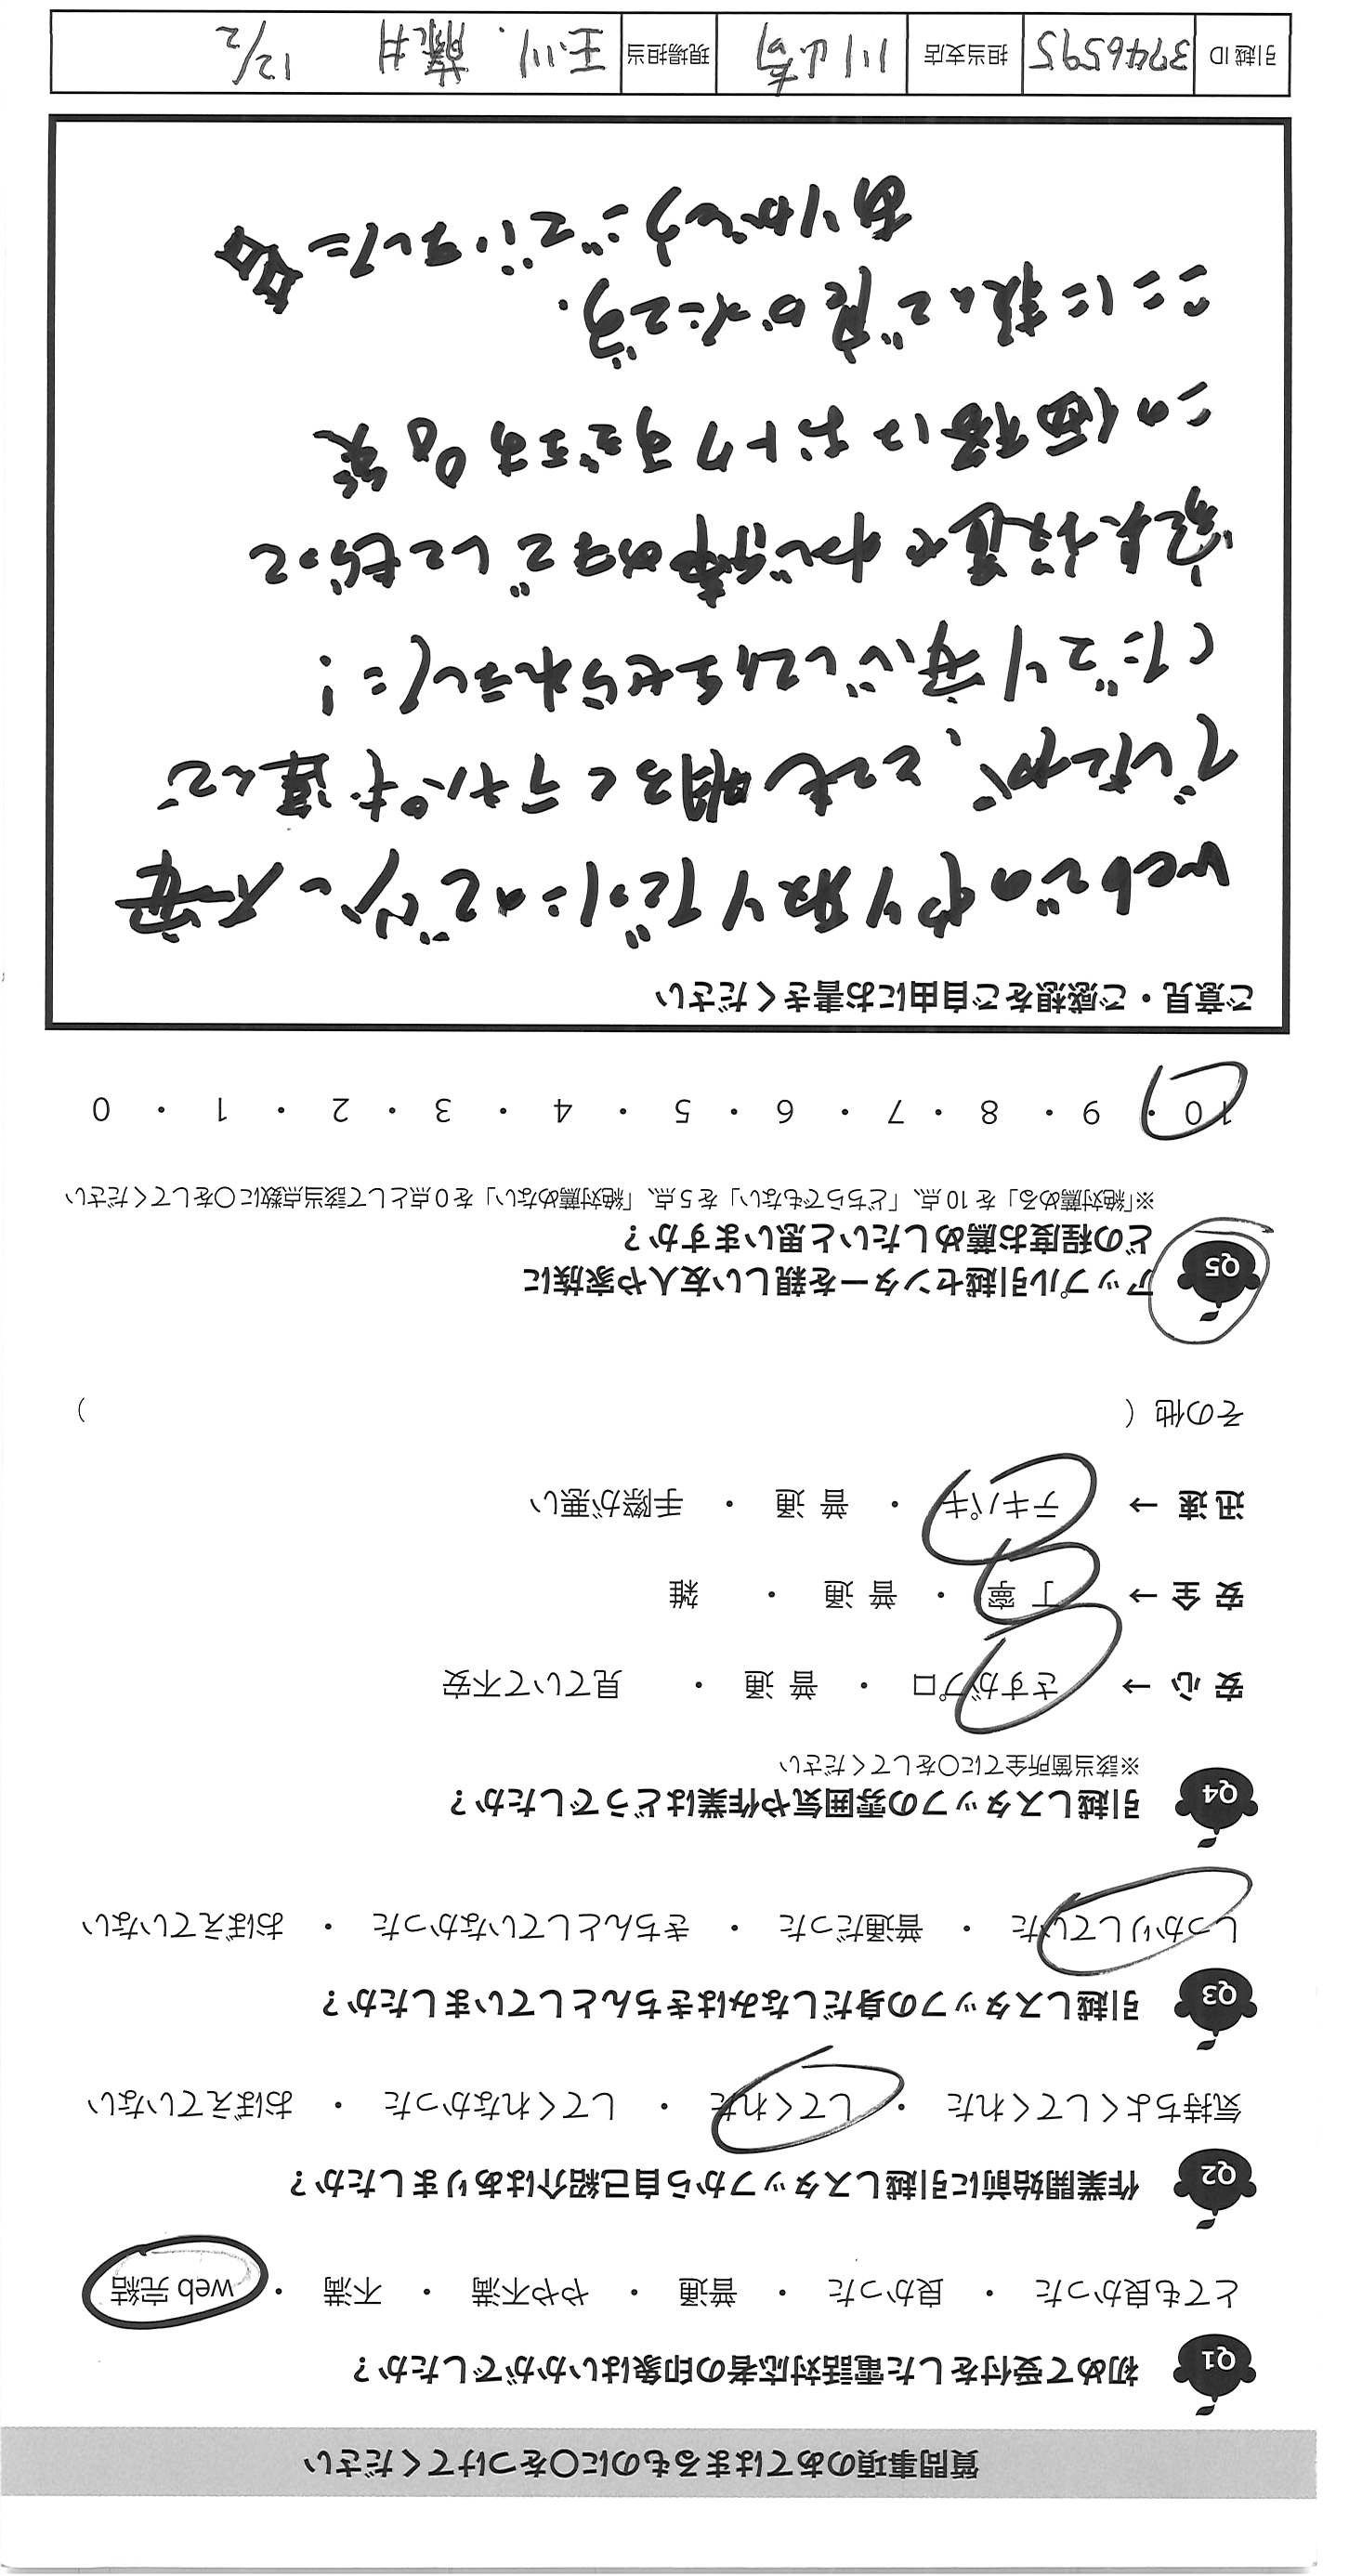 質問事項のあてはまるものに○をつけてください
Q1 初めて受付をした電話対応者の印象はいかがでしたか？
とても良かった ・ 良かった ・ 普通 ・ やや不満 ・ 不満 ・ web 完結
Q2 作業開始前に引越しスタッフから自己紹介はありましたか？
気持ちよくしてくれた ・ してくれた ・ してくれなかった ・ おぼえていない
Q3 引越しスタッフの身だしなみはきちんとしていましたか？
しっかりしていた ・ 普通だった ・ きちんとしていなかった ・ おぼえていない
Q4 引越しスタッフの雰囲気や作業はどうでしたか？
※該当箇所全てに○をしてください
安 心 → さすがプロ ・ 普 通 ・ 見ていて不安
安 全 → 丁 寧 ・ 普 通 ・ 雑
迅 速 → テキパキ ・ 普 通 ・ 手際が悪い
その他（ ）
Q5 アップル引越センターを親しい友人や家族に
どの程度お薦めしたいと思いますか？
※「絶対薦める」を 10 点、「どちらでもない」を 5 点、「絶対薦めない」を 0 点として該当点数に○をしてください
10 ・ 9 ・ 8 ・ 7 ・ 6 ・ 5 ・ 4 ・ 3 ・ 2 ・ 1 ・ 0
ご意見・ご感想をご自由にお書きください
webでのやり取りだったので少し不安
でしたが、とても明るくテキパキ運んで
くださり安心してまかせられました！
家具設置や拭き掃除までしてもらって
この価格はおトクすぎます 笑
ここに頼んで良かったです.
ありがとうございました
引越 ID 3746595 担当支店 川崎 現場担当 玉川. 藤井 12/2